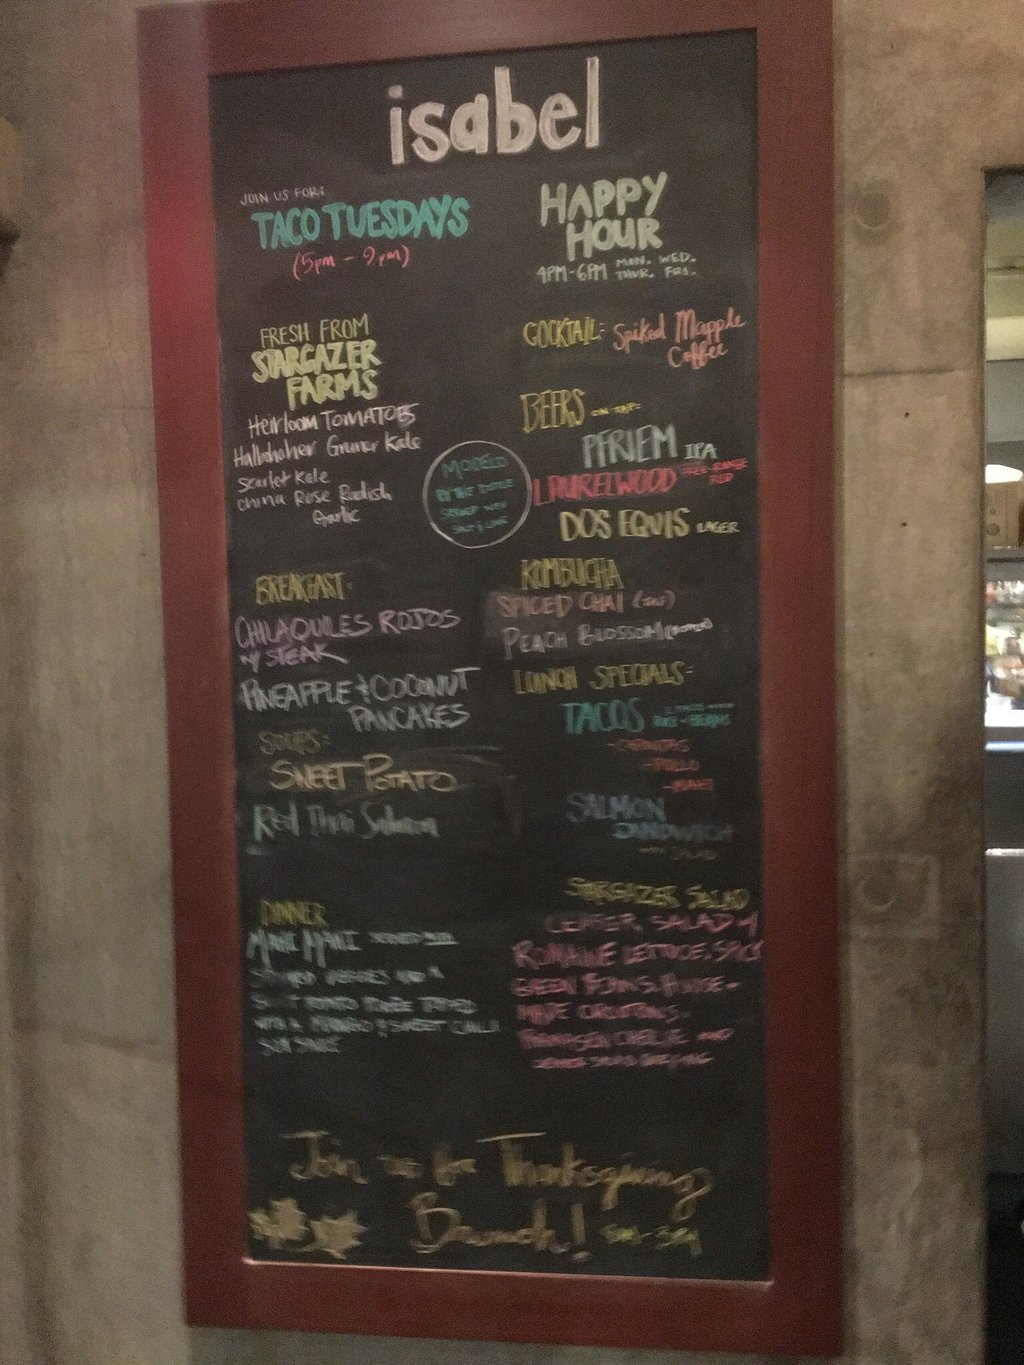 isabel
JOIN US FOR:
TACO TUESDAYS
(5pm - 9pm)
FRESH FROM
STARGAZER
FARMS
Heirloom TOMATOES
Kale
Scarlet Kale
China Rose Radish
Garlic
BREAKFAST:
CHILAQUILES ROJOS
W/ STEAK
PINEAPPLE & COCONUT
PANCAKES
SOUPS:
SWEET POTATO
Red Thai Salmon
DINNER
MAHI MAHI
HAPPY
HOUR
4PM-6PM MON. WED.
THUR. FRI.
COCKTAIL: Spiked Mapple
Coffee
BEERS ON TAP:
PFRIEM IPA
LAURELWOOD FREE RANGE
RED
DOS EQUIS LAGER
MODELO
BY THE BOTTLE
SERVED WITH
SALT & LIME
KOMBUCHA
SPICED CHAI
PEACH BLOSSOM
LUNCH SPECIALS:
TACOS
- CARNITAS
- POLLO
- MAHI
SALMON
SANDWICH
STARGAZER SALAD
SALAD W/
ROMAINE LETTUCE,
GREEN BEANS, HOUSE-
MADE CROUTONS,
AND
Join us for Thanksgiving
Brunch! - 3PM